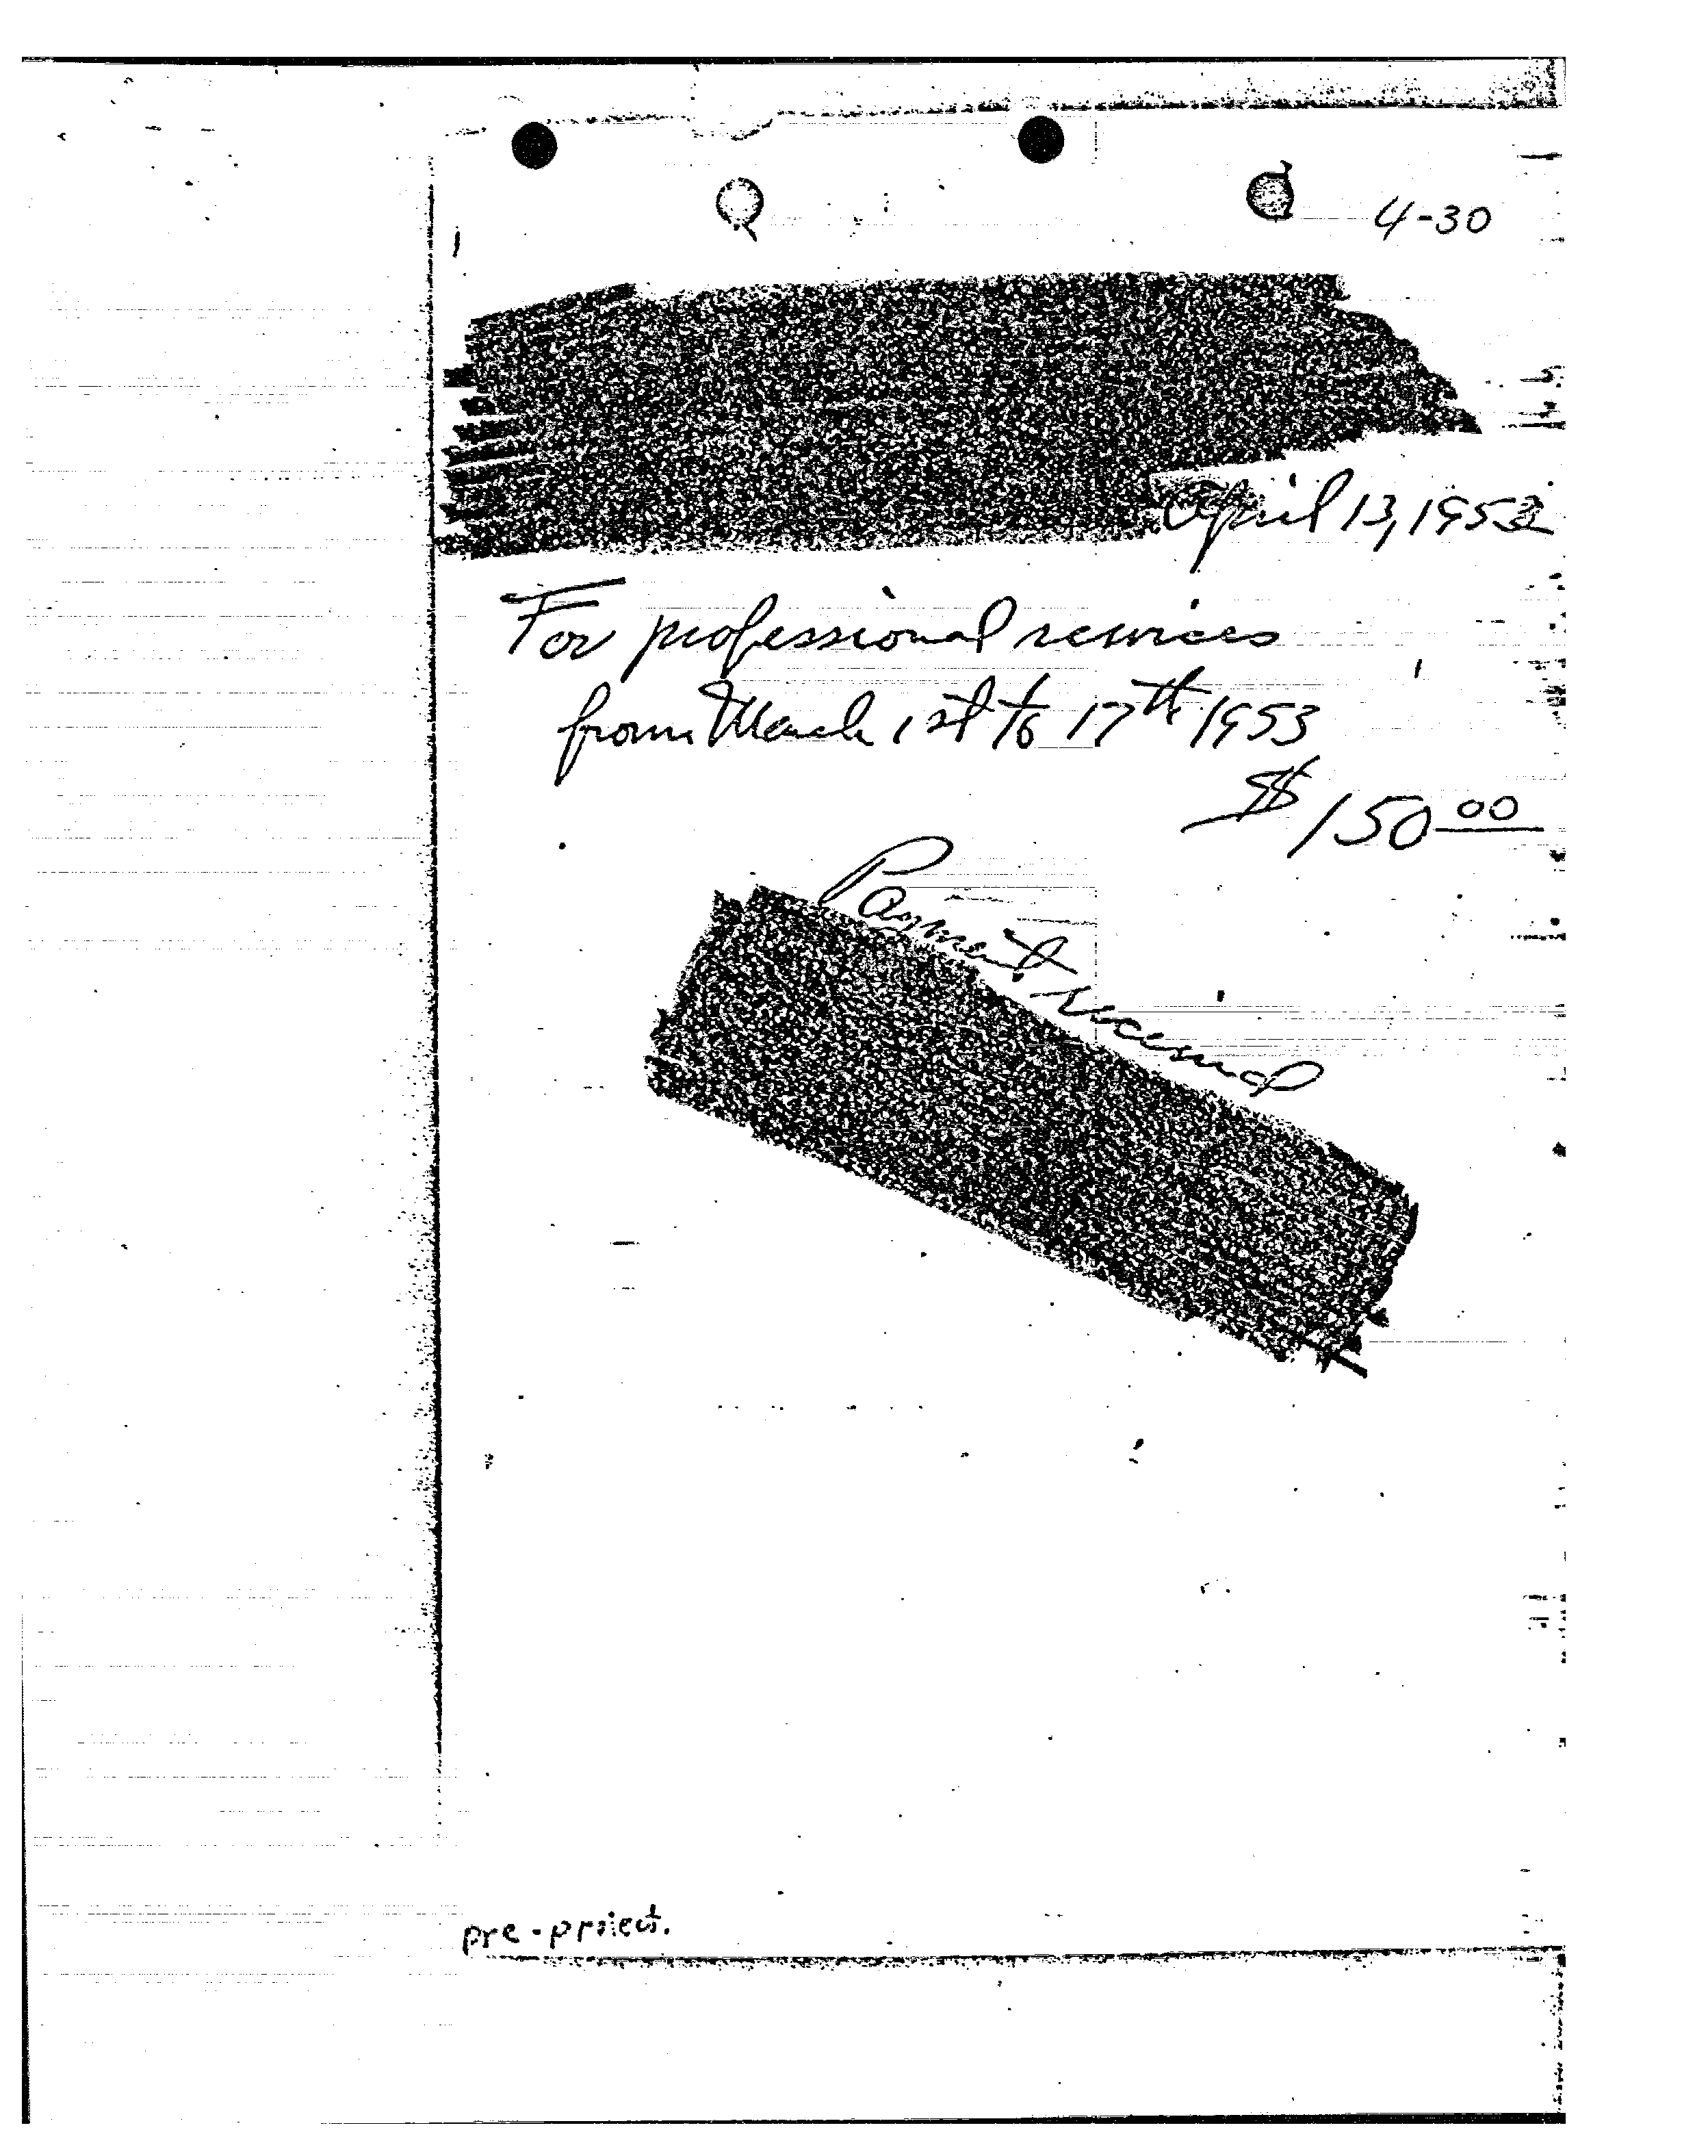 4-30
April 13, 1953
For professional services
from March 1st to 17th 1953
$150.00
Payment received
pre-project.